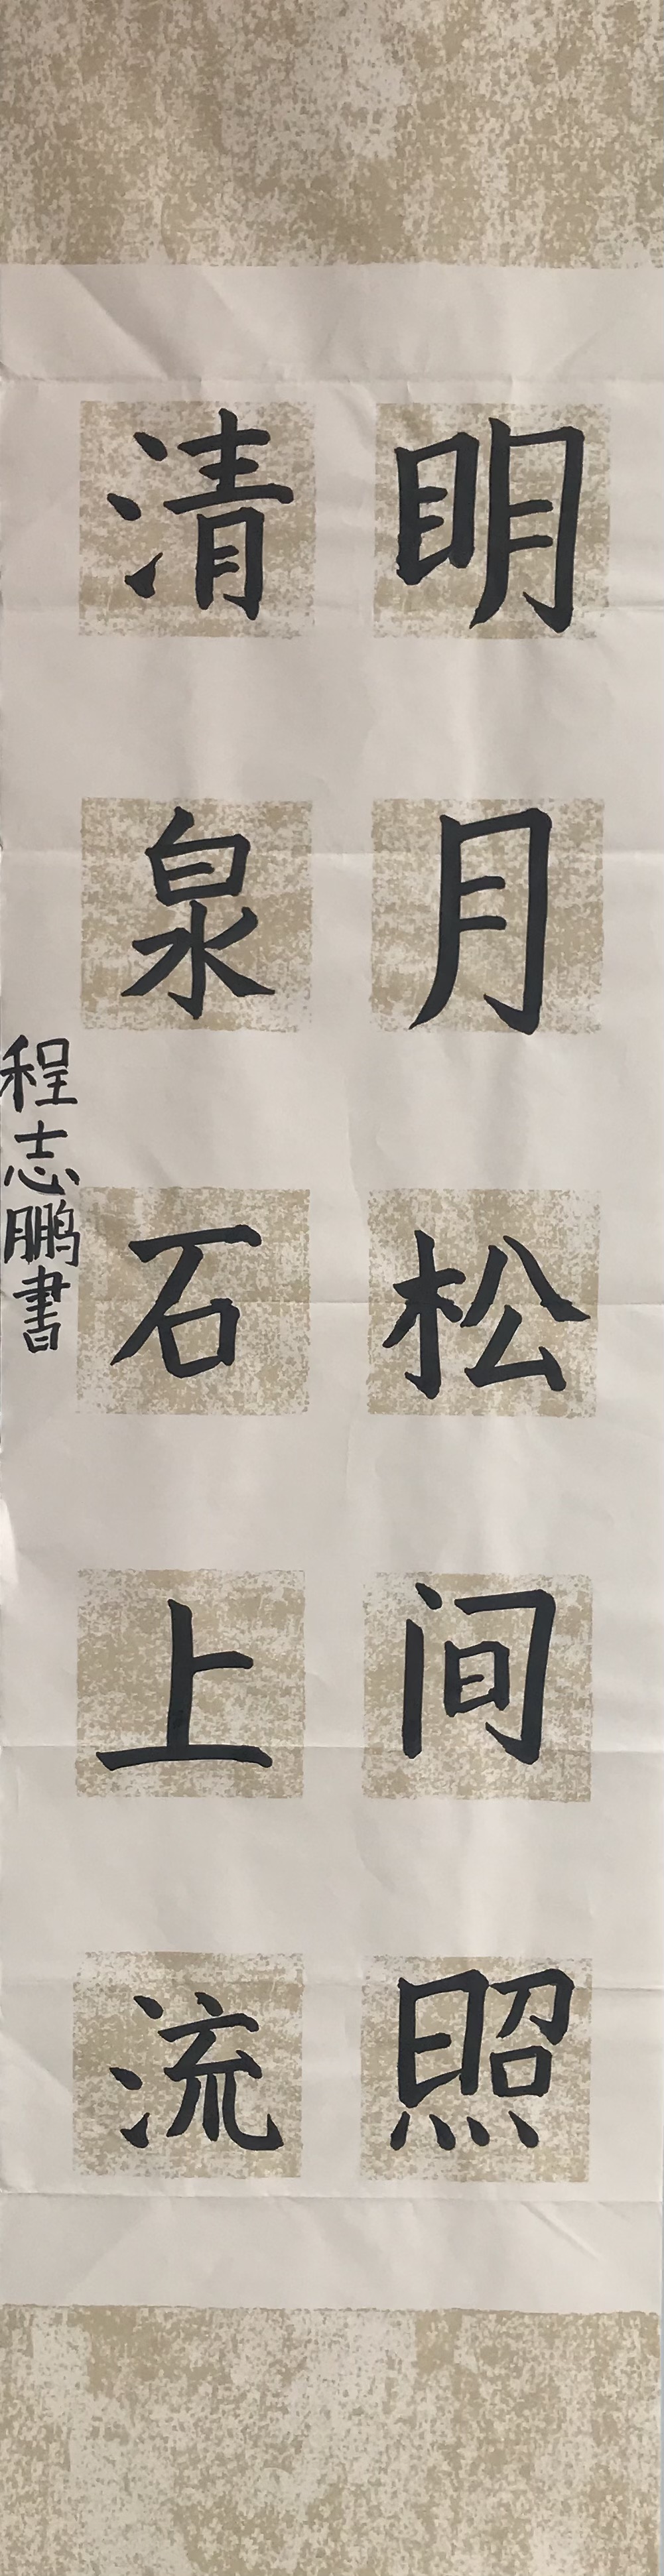 明月松间照
清泉石上流
程志鹏書